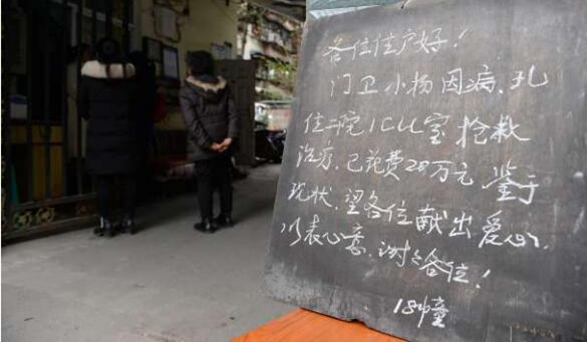 各位住户好!
门卫小杨因病,现
住二院ICU室抢救
治疗,已花费28万元 鉴于
现状,望各位献出爱心,
以表心意,谢谢各位!
18幢